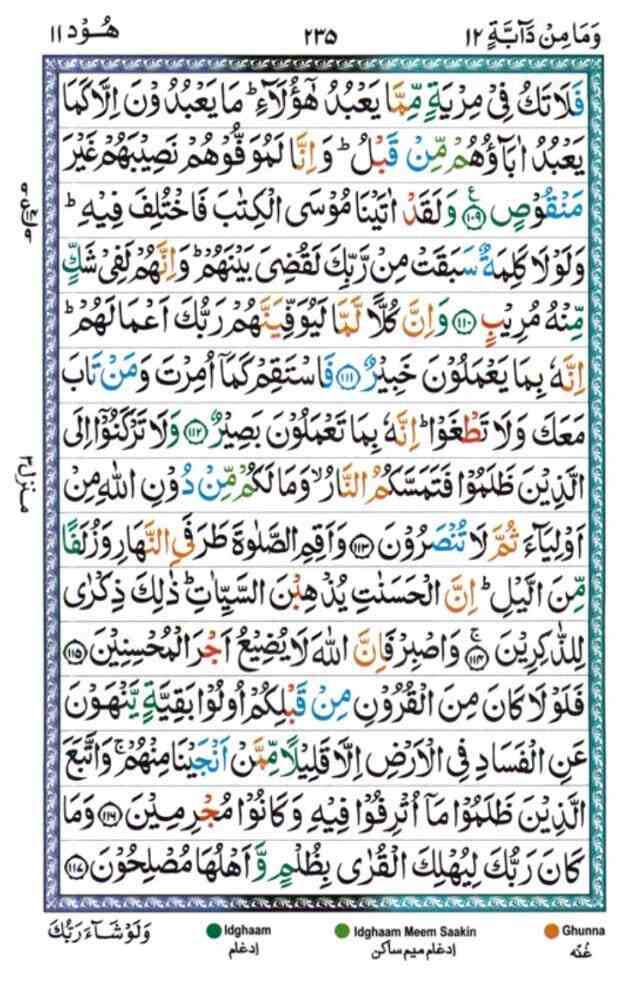 وَمَا مِنْ دَآبَّةٍ ١٢
٢٣٥
هُوْد ١١
فَلَا تَكُ فِىْ مِرْيَةٍ مِّمَّا يَعْبُدُ هٰٓؤُلَآءِ ؕ مَا يَعْبُدُوْنَ اِلَّا كَمَا
يَعْبُدُ اٰبَآؤُهُمْ مِّنْ قَبْلُ ؕ وَاِنَّا لَمُوَفُّوْهُمْ نَصِيْبَهُمْ غَيْرَ
مَنْقُوْصٍ ﴿۱۰۹﴾ وَلَقَدْ اٰتَيْنَا مُوْسَى الْكِتٰبَ فَاخْتُلِفَ فِيْهِ ؕ
وَلَوْلَا كَلِمَةٌ سَبَقَتْ مِنْ رَّبِّكَ لَقُضِىَ بَيْنَهُمْ ؕ وَاِنَّهُمْ لَفِىْ شَكٍّ
مِّنْهُ مُرِيْبٍ ﴿۱۱۰﴾ وَاِنَّ كُلًّا لَّمَّا لَيُوَفِّيَنَّهُمْ رَبُّكَ اَعْمَالَهُمْ ؕ
اِنَّهٗ بِمَا يَعْمَلُوْنَ خَبِيْرٌ ﴿۱۱۱﴾ فَاسْتَقِمْ كَمَاۤ اُمِرْتَ وَمَنْ تَابَ
مَعَكَ وَلَا تَطْغَوْا ؕ اِنَّهٗ بِمَا تَعْمَلُوْنَ بَصِيْرٌ ﴿۱۱۲﴾ وَلَا تَرْكَنُوْۤا اِلَى
الَّذِيْنَ ظَلَمُوْا فَتَمَسَّكُمُ النَّارُ ۙ وَمَا لَكُمْ مِّنْ دُوْنِ اللّٰهِ مِنْ
اَوْلِيَآءَ ثُمَّ لَا تُنْصَرُوْنَ ﴿۱۱۳﴾ وَاَقِمِ الصَّلٰوةَ طَرَفَىِ النَّهَارِ وَزُلَفًا
مِّنَ الَّيْلِ ؕ اِنَّ الْحَسَنٰتِ يُذْهِبْنَ السَّيِّاٰتِ ؕ ذٰلِكَ ذِكْرٰى
لِلذّٰكِرِيْنَ ﴿۱۱۴﴾ وَاصْبِرْ فَاِنَّ اللّٰهَ لَا يُضِيْعُ اَجْرَ الْمُحْسِنِيْنَ ﴿۱۱۵﴾
فَلَوْلَا كَانَ مِنَ الْقُرُوْنِ مِنْ قَبْلِكُمْ اُولُوْا بَقِيَّةٍ يَّنْهَوْنَ
عَنِ الْفَسَادِ فِى الْاَرْضِ اِلَّا قَلِيْلًا مِّمَّنْ اَنْجَيْنَا مِنْهُمْ ۚ وَاتَّبَعَ
الَّذِيْنَ ظَلَمُوْا مَاۤ اُتْرِفُوْا فِيْهِ وَكَانُوْا مُجْرِمِيْنَ ﴿۱۱۶﴾ وَمَا
كَانَ رَبُّكَ لِيُهْلِكَ الْقُرٰى بِظُلْمٍ وَّاَهْلُهَا مُصْلِحُوْنَ ﴿۱۱۷﴾
منزل ۳
وَلَوْ شَآءَ رَبُّكَ
Idghaam
ادغام
Idghaam Meem Saakin
ادغام میم ساکن
Ghunna
غُنّہ